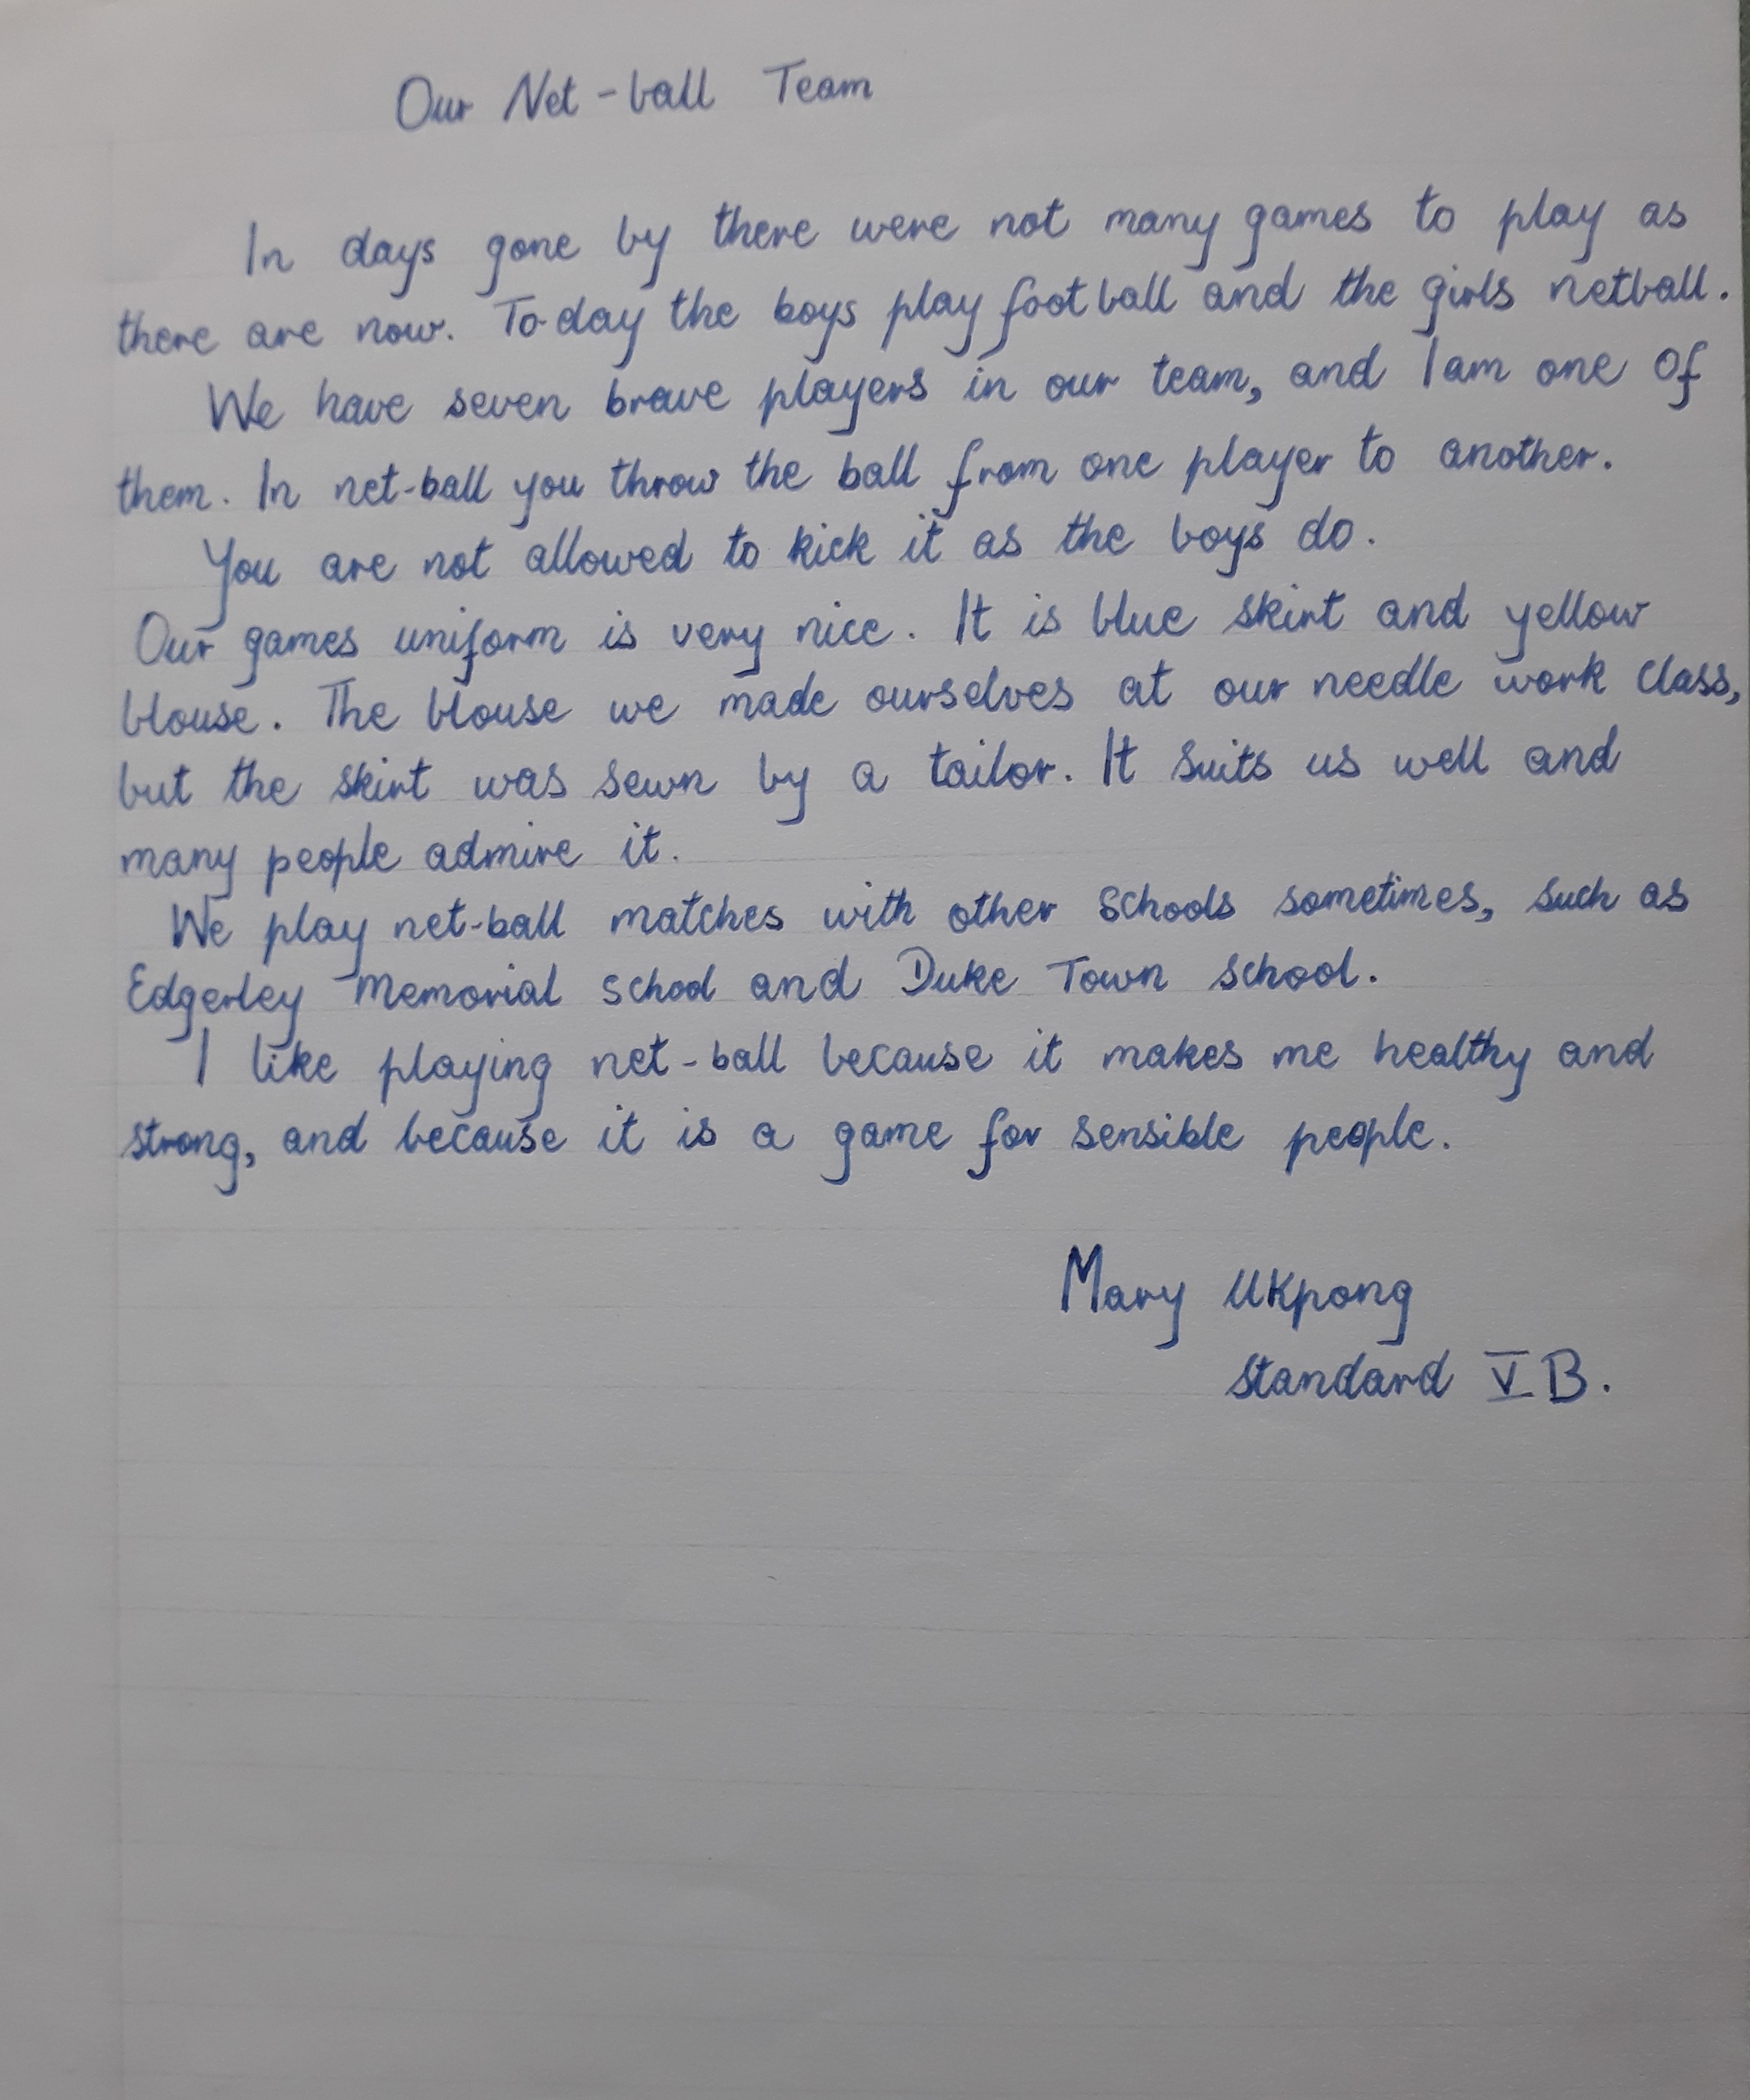 Our Net-ball Team
In days gone by there were not many games to play as
there are now. To-day the boys play football and the girls netball.
We have seven brave players in our team, and I am one of
them. In net-ball you throw the ball from one player to another.
You are not allowed to kick it as the boys do.
Our games uniform is very nice. It is blue skirt and yellow
blouse. The blouse we made ourselves at our needle work class,
but the skirt was sewn by a tailor. It suits us well and
many people admire it.
We play net-ball matches with other schools sometimes, such as
Edgerley Memorial school and Duke Town school.
I like playing net-ball because it makes me healthy and
strong, and because it is a game for sensible people.
Mary Ukpong
Standard V B.